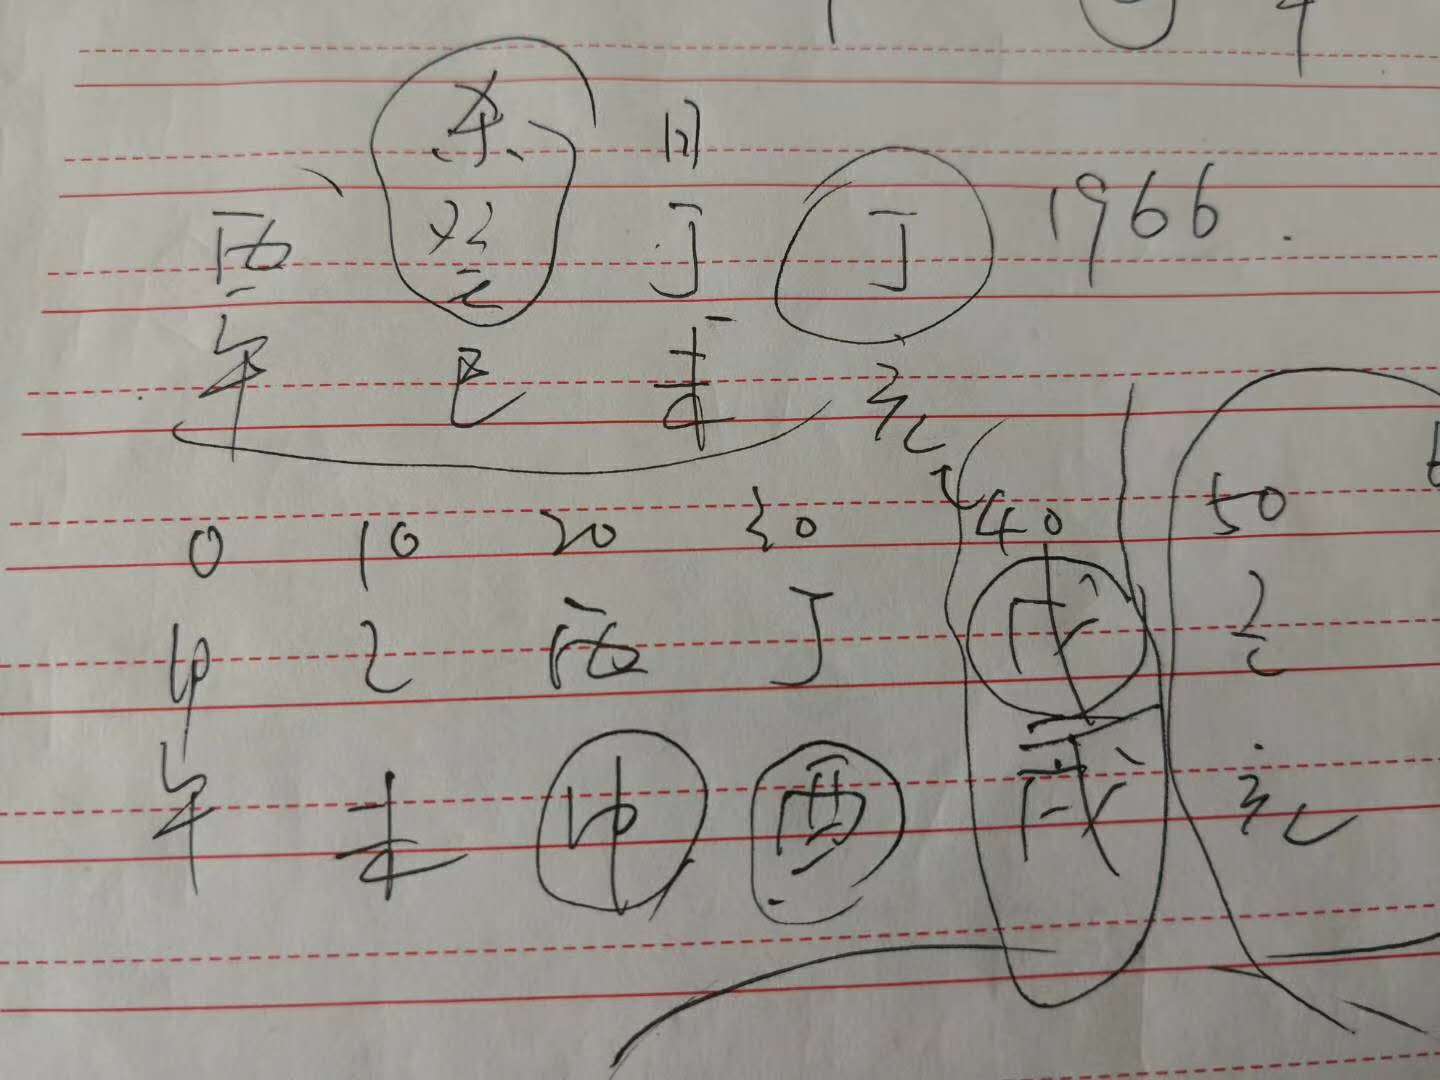 杀 日
丙 癸 丁 丁 1966.
午 巳 未 亥
0 10 20 30 40 50
甲 乙 丙 丁 戊 己
午 未 申 酉 戌 亥